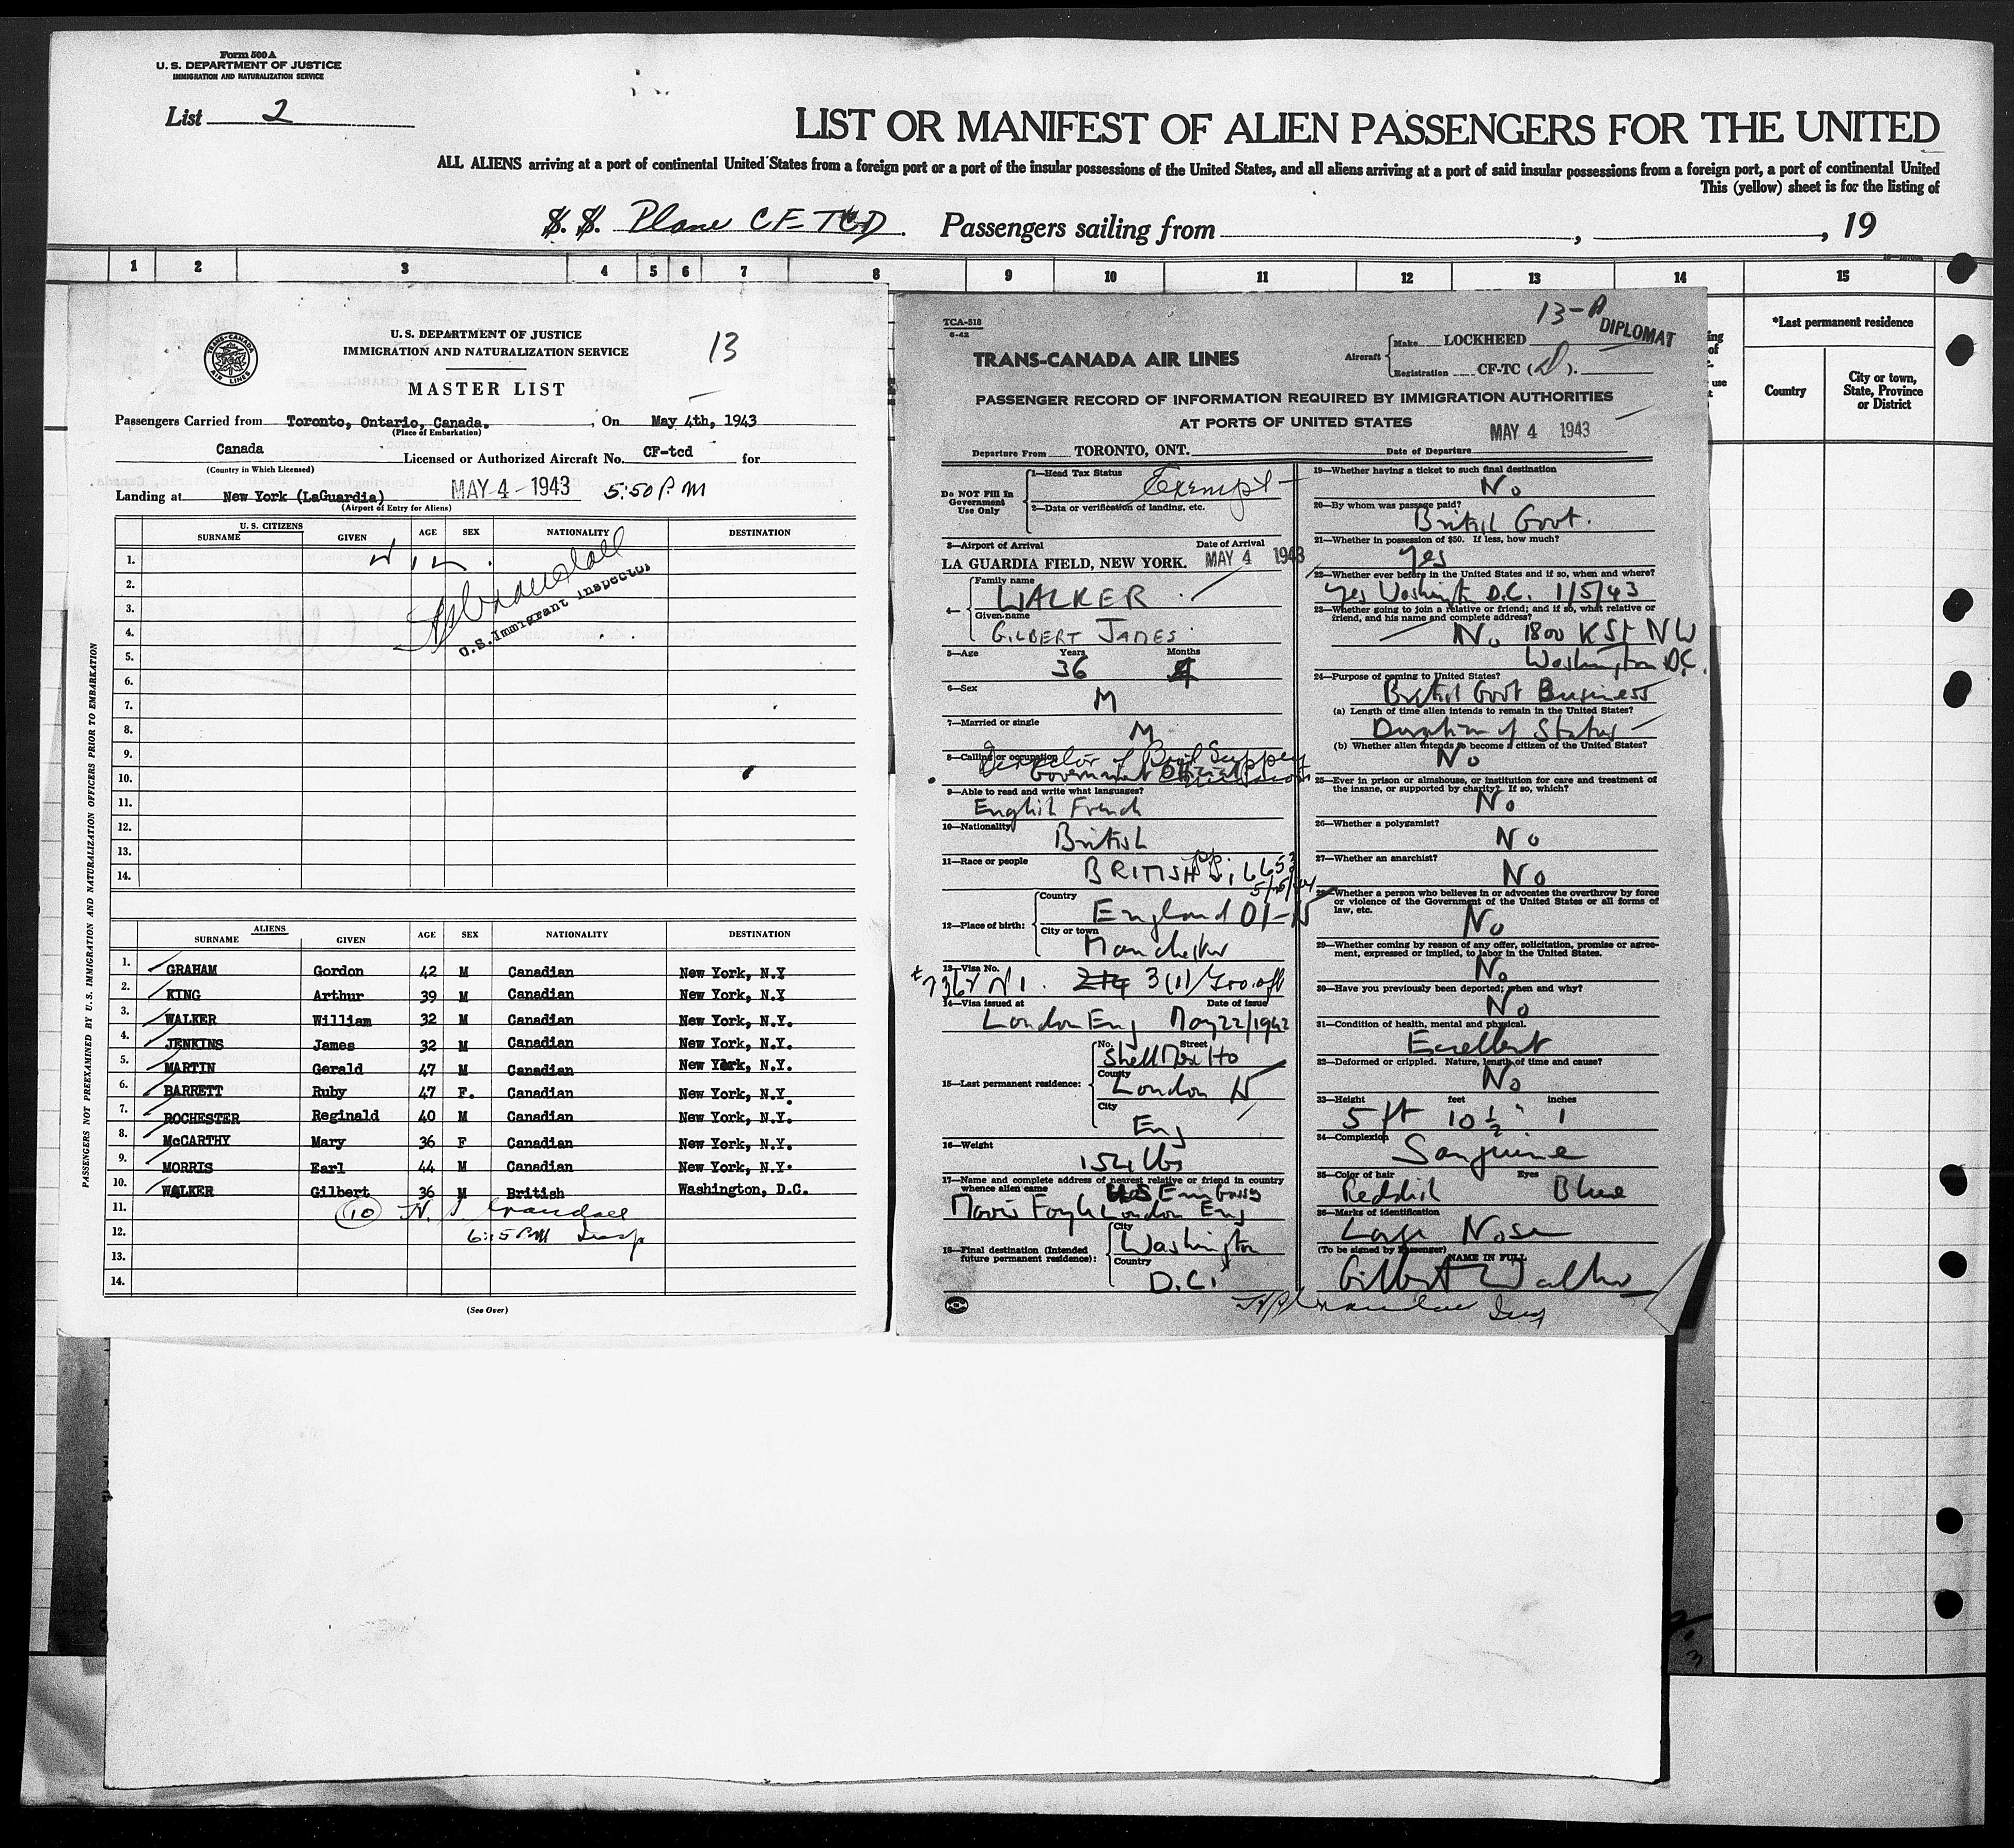 Form 500 A
U. S. DEPARTMENT OF JUSTICE
IMMIGRATION AND NATURALIZATION SERVICE
List 2
LIST OR MANIFEST OF ALIEN PASSENGERS FOR THE UNITED
ALL ALIENS arriving at a port of continental United States from a foreign port or a port of the insular possessions of the United States, and all aliens arriving at a port of said insular possessions from a foreign port, a port of continental United
This (yellow) sheet is for the listing of
S. S. Plane CF-TCD Passengers sailing from , , 19
1 2 3 4 5 6 7 8 9 10 11 12 13 14 15
*Last permanent residence
Country
City or town, State, Province or District
TRANS-CANADA AIR LINES
U. S. DEPARTMENT OF JUSTICE
IMMIGRATION AND NATURALIZATION SERVICE
13
MASTER LIST
Passengers Carried from Toronto, Ontario, Canada. , On May 4th, 1943
(Place of Embarkation)
Canada Licensed or Authorized Aircraft No. CF-tcd for
(Country in Which Licensed)
Landing at New York (LaGuardia) MAY 4 - 1943 5:50 P.M
(Airport of Entry for Aliens)
U. S. CITIZENS
SURNAME GIVEN AGE SEX NATIONALITY DESTINATION
1.
2.
3.
U.S. Immigrant Inspector
4.
5.
6.
7.
8.
9.
10.
11.
12.
13.
14.
ALIENS
SURNAME GIVEN AGE SEX NATIONALITY DESTINATION
1. GRAHAM Gordon 42 M Canadian New York, N.Y
2. KING Arthur 39 M Canadian New York, N.Y
3. WALKER William 32 M Canadian New York, N.Y.
4. JENKINS James 32 M Canadian New York, N.Y.
5. MARTIN Gerald 47 M Canadian New York, N.Y.
6. BARRETT Ruby 47 F. Canadian New York, N.Y.
7. ROCHESTER Reginald 40 M Canadian New York, N.Y.
8. McCARTHY Mary 36 F Canadian New York, N.Y.
9. MORRIS Earl 44 M Canadian New York, N.Y.
10. WALKER Gilbert 36 M British Washington, D.C.
11. 10
12. 6:15 PM Insp
13.
14.
(See Over)
PASSENGERS NOT PREEXAMINED BY U. S. IMMIGRATION AND NATURALIZATION OFFICERS PRIOR TO EMBARKATION
TCA-518
6-42
13-A
DIPLOMAT
TRANS-CANADA AIR LINES
Aircraft Make LOCKHEED
Registration CF-TC (D).
PASSENGER RECORD OF INFORMATION REQUIRED BY IMMIGRATION AUTHORITIES
AT PORTS OF UNITED STATES
Departure From TORONTO, ONT. MAY 4 1943 Date of Departure
Do NOT Fill In Government Use Only
1—Head Tax Status Exempt
2—Data or verification of landing, etc.
3—Airport of Arrival Date of Arrival
LA GUARDIA FIELD, NEW YORK. MAY 4 1943
4— Family name WALKER
Given name GILBERT JAMES
5—Age Years 36 Months 4
6—Sex M
7—Married or single M
8—Calling or occupation Director of
Government Official
9—Able to read and write what languages?
English French
10—Nationality British
11—Race or people BRITISH
12—Place of birth: Country England
City or town Manchester
13—Visa No.
3(1)
14—Visa issued at Date of issue
London Eng May 22/1942
15—Last permanent residence: No. Street Shell Mex Ho
County London
City Eng
16—Weight 154 lbs
17—Name and complete address of nearest relative or friend in country whence alien came
US Embassy
London Eng
18—Final destination (Intended future permanent residence): City Washington
Country D.C.
19—Whether having a ticket to such final destination
No
20—By whom was passage paid?
British Govt.
21—Whether in possession of $50. If less, how much?
Yes
22—Whether ever before in the United States and if so, when and where?
Yes Washington D.C. 1/5/43
23—Whether going to join a relative or friend; and if so, what relative or friend, and his name and complete address?
No 1800 K St NW
Washington D.C.
24—Purpose of coming to United States?
British Govt Business
(a) Length of time alien intends to remain in the United States?
Duration of Status
(b) Whether alien intends to become a citizen of the United States?
No
25—Ever in prison or almshouse, or institution for care and treatment of the insane, or supported by charity? If so, which?
No
26—Whether a polygamist?
No
27—Whether an anarchist?
No
28—Whether a person who believes in or advocates the overthrow by force or violence of the Government of the United States or all forms of law, etc.
No
29—Whether coming by reason of any offer, solicitation, promise or agreement, expressed or implied, to labor in the United States.
No
30—Have you previously been deported; when and why?
No
31—Condition of health, mental and physical.
Excellent
32—Deformed or crippled. Nature, length of time and cause?
No
33—Height feet inches
5 ft 10 ½"
34—Complexion
Sanguine
35—Color of hair Eyes
Reddish Blue
36—Marks of identification
Large Nose
(To be signed by Passenger) NAME IN FULL
Gilbert Walker